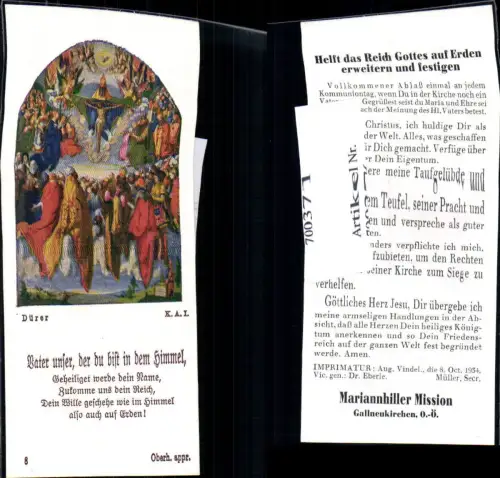 Dürer K. A. I.
Vater unser, der du bist in dem Himmel,
Geheiliget werde dein Name,
Zukomme uns dein Reich,
Dein Wille geschehe wie im Himmel
also auch auf Erden!
8 Oberh. appr.
Helft das Reich Gottes auf Erden
erweitern und festigen
Vollkommener Ablaß einmal an jedem
Kommuniontag, wenn Du in der Kirche noch ein
Vater Gegrüßest seist du Maria und Ehre sei
ach der Meinung des Hl. Vaters betest.
Christus, ich huldige Dir als
der Welt. Alles, was geschaffen
ür Dich gemacht. Verfüge über
er Dein Eigentum.
ere meine Taufgelübde und
em Teufel, seiner Pracht und
en und verspreche als guter
ten.
nders verpflichte ich mich,
fzubieten, um den Rechten
einer Kirche zum Siege zu
verhelfen.
Göttliches Herz Jesu, Dir übergebe ich
meine armseligen Handlungen in der Ab-
sicht, daß alle Herzen Dein heiliges König-
tum anerkennen und so Dein Friedens-
reich auf der ganzen Welt fest begründet
werde. Amen.
IMPRIMATUR: Aug. Vindel., die 8. Oct. 1934.
Vic. gen.: Dr. Eberle. Müller, Secr.
Mariannhiller Mission
Gallneukirchen, O.-Ö.
Artikel Nr.
700371